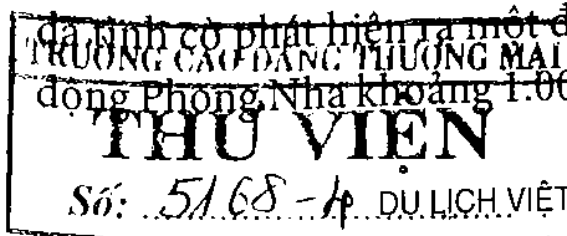 đã tình cờ phát hiện ra một đ
TRƯỜNG CAO ĐẲNG THƯƠNG MẠI
động Phong Nha khoảng 1.00
THƯ VIỆN
Số: 5168 DU LỊCH VIỆT